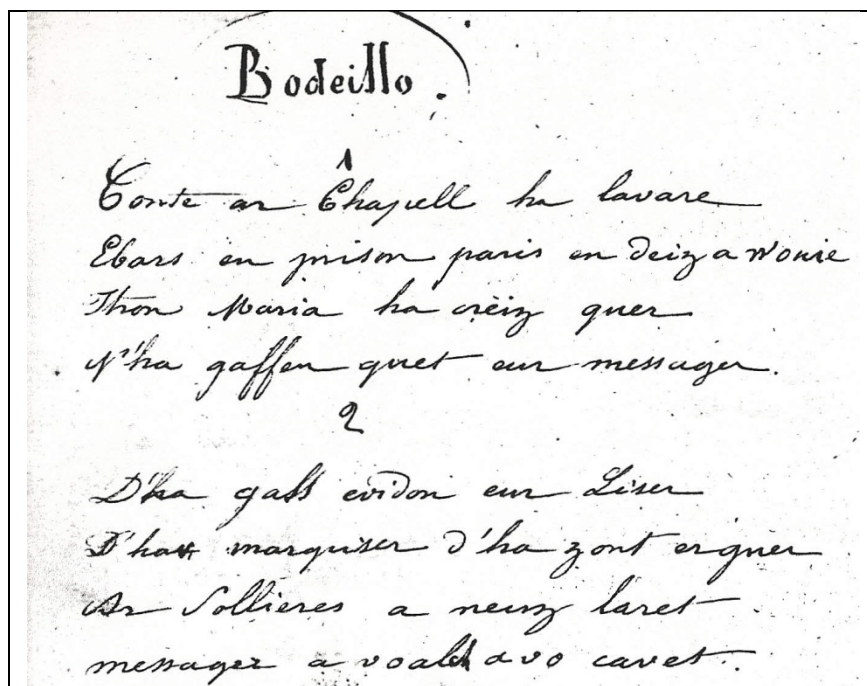 Bodeillo.
1
Conte ar Chapell ha lavare
Ebars en prison paris en deiz a voue
Itron Maria ha creiz quer
N'ha gaffen quet eur messager.
2
D'ha gass evidon eur Liser
D'ha marquiser d'ha zont er guer
Ar Sollieres a neuz laret
messager a voalh a vo cavet.